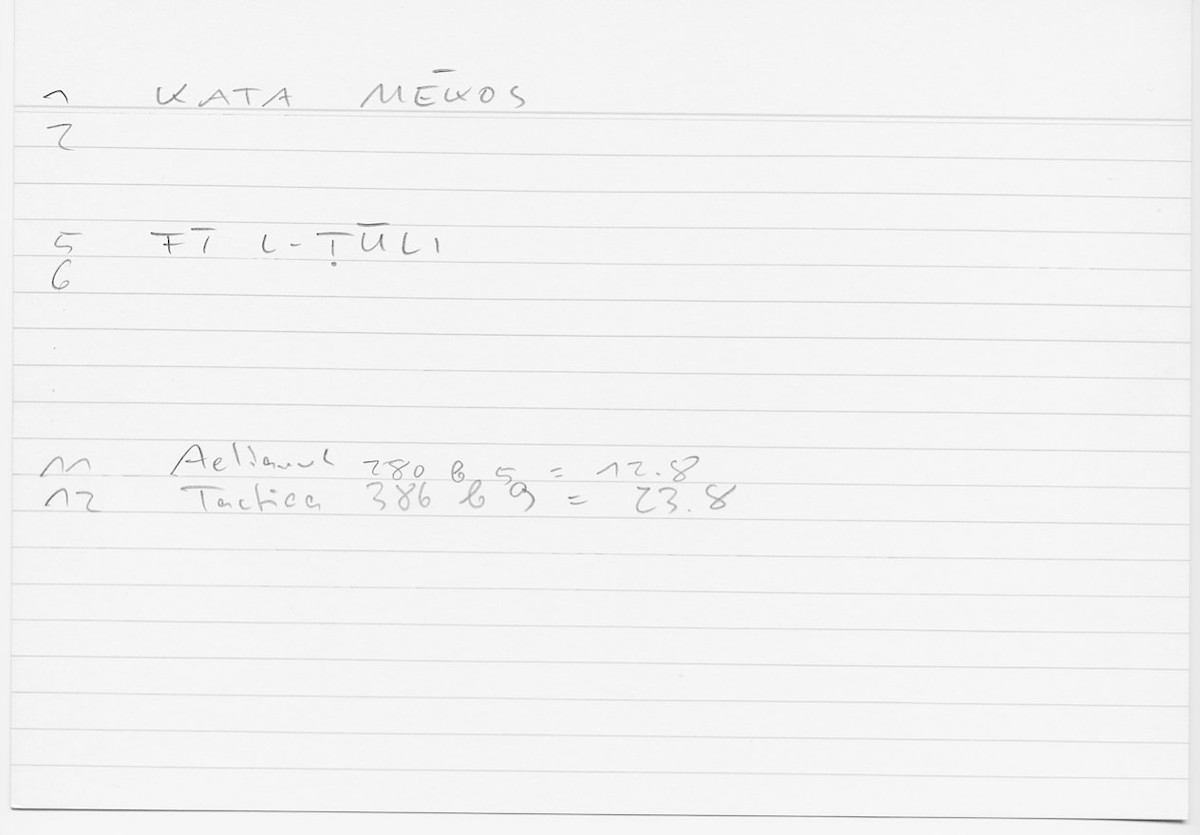 1 KATA MĒKOS
2
5 FĪ L-ṬŪLI
6
11 Aelianus 280 b 5 = 12.8
12 Tactica 386 b 9 = 23.8